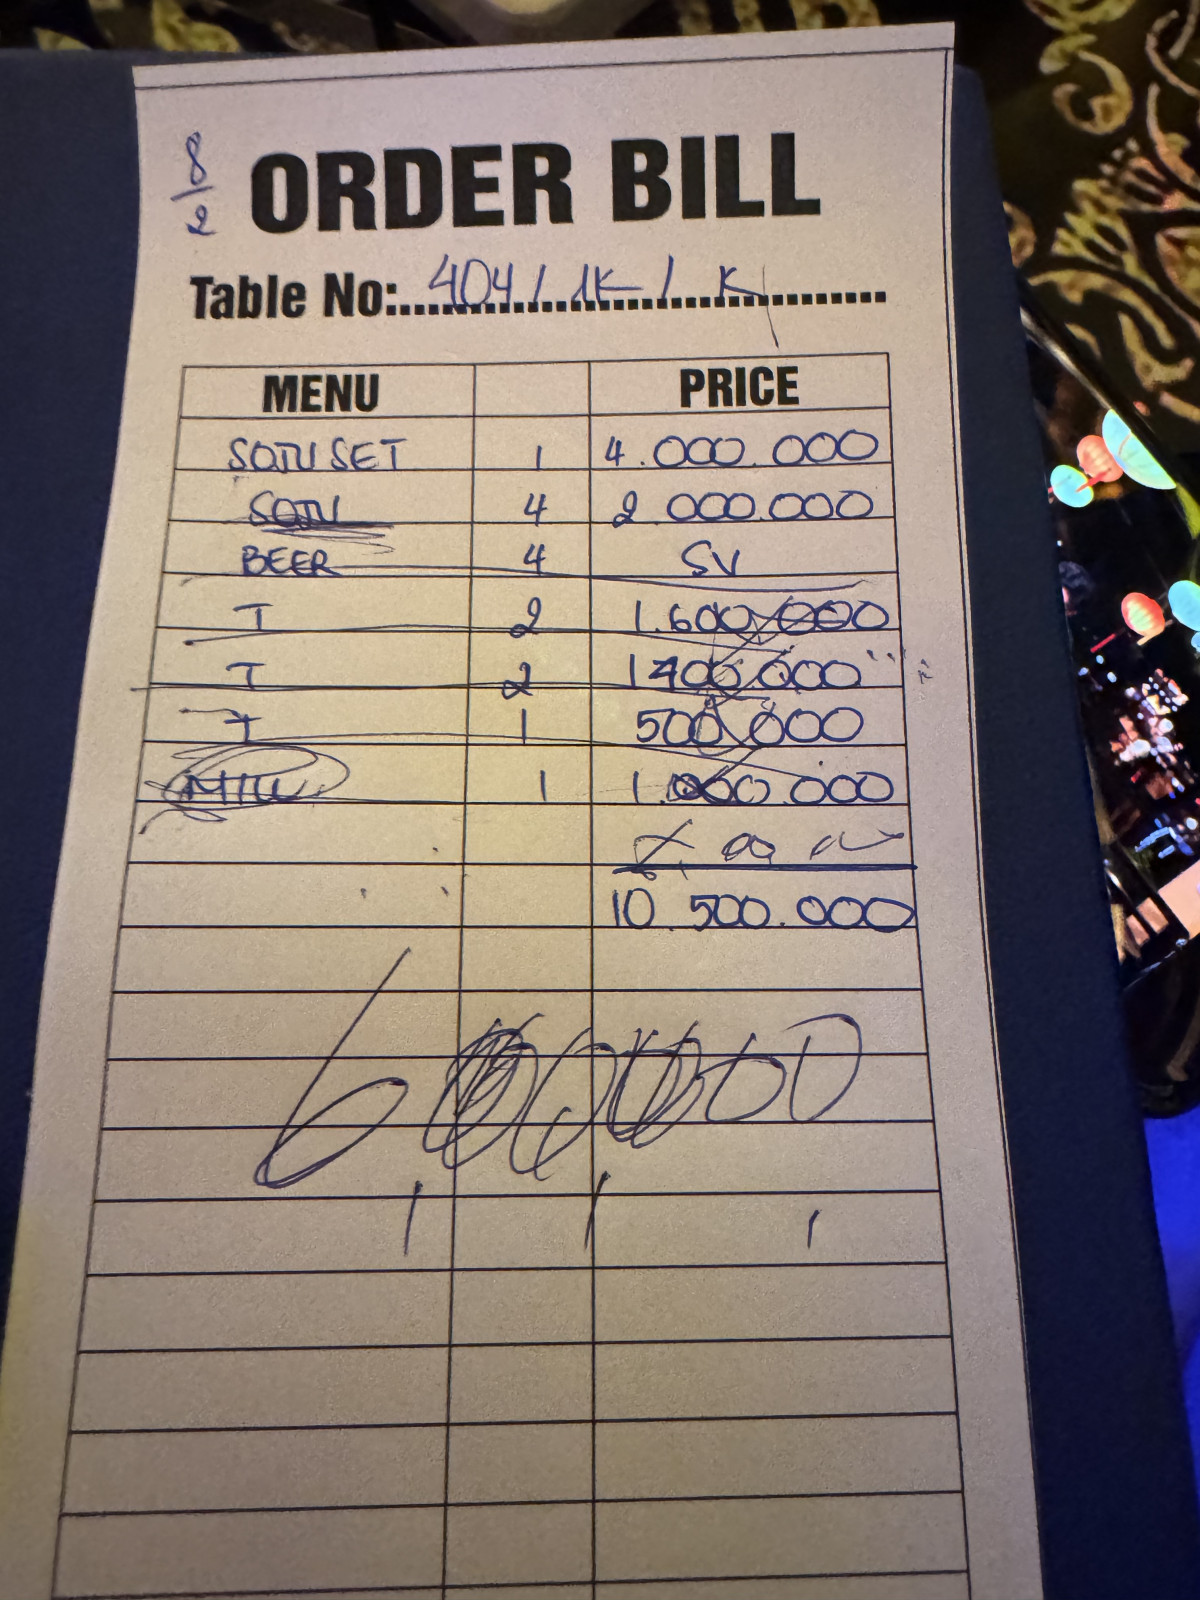 2/8
ORDER BILL
Table No: 404 / 1K / K
MENU PRICE
SOJU SET 1 4.000.000
SOJU 4 2.000.000
BEER 4 SV
T 2 1.600.000
T 2 1400.000
T 1 500.000
1 1.000.000
10.500.000